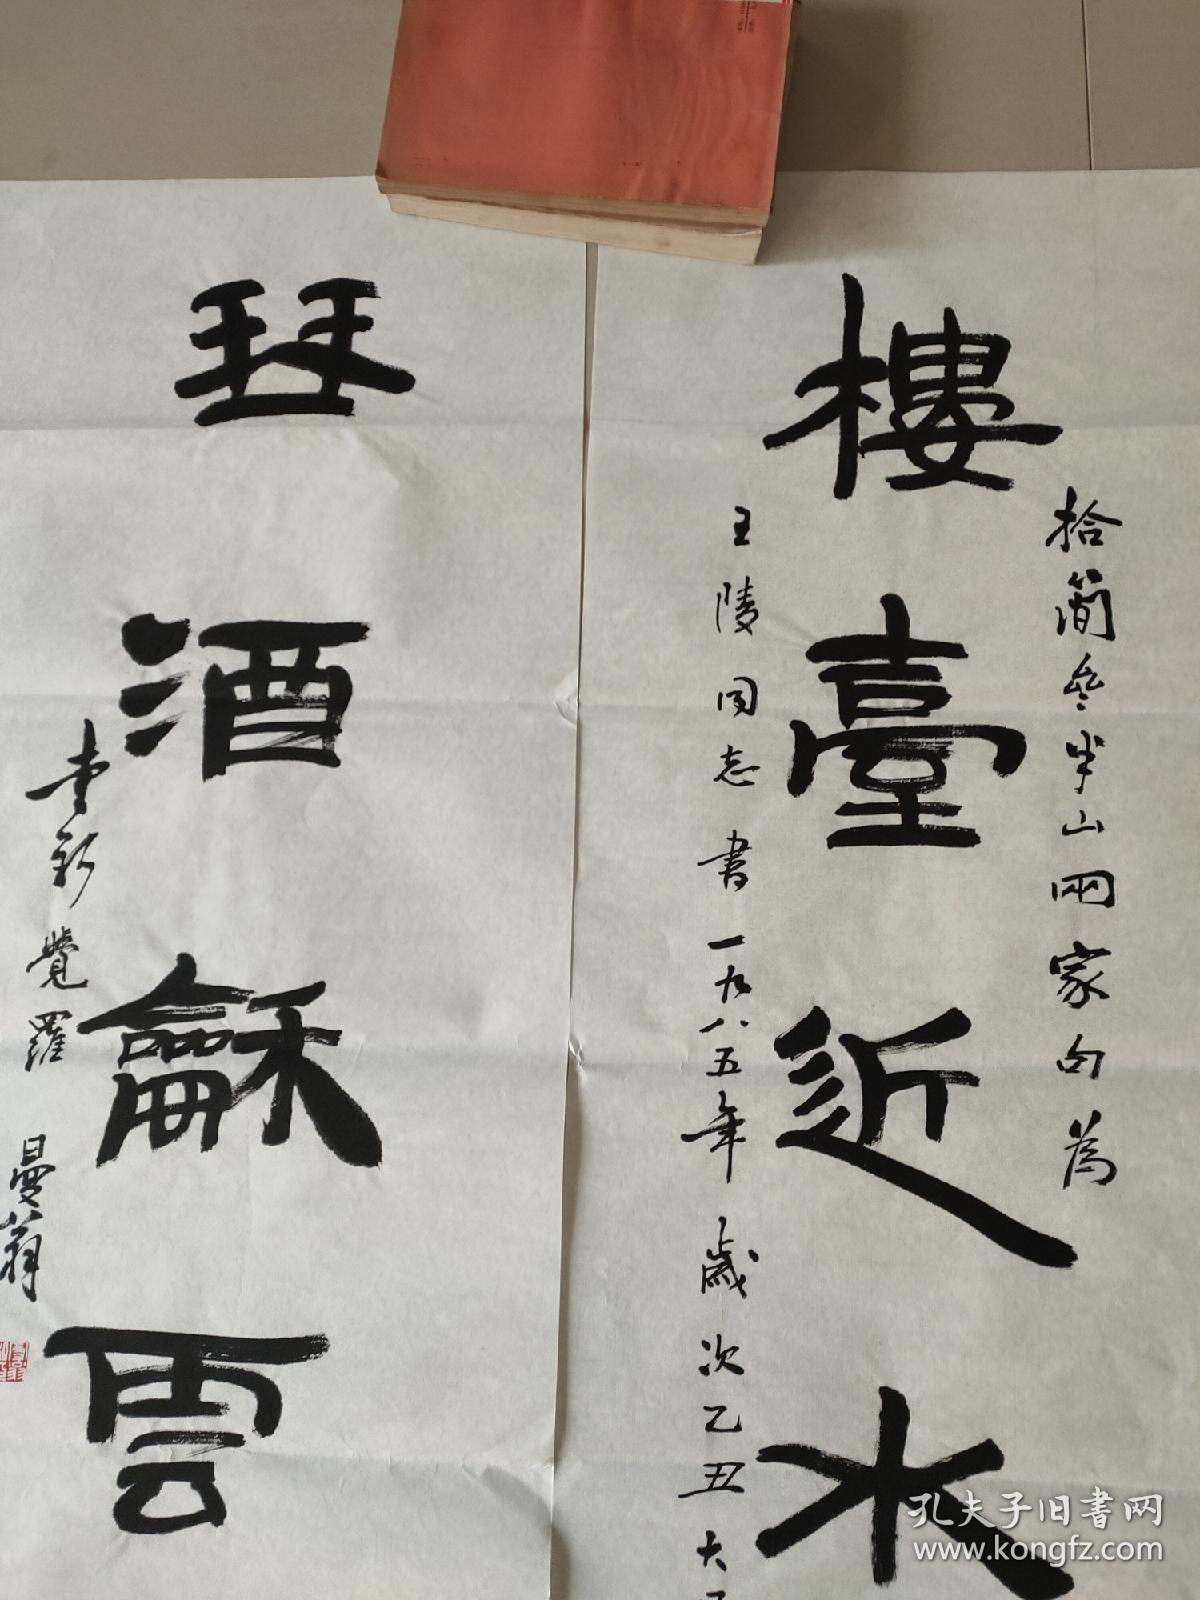 樓臺近水
拾簡叅半山兩家句為
王陵同志書一九八五年歲次乙丑大
琹酒龢雲
覺羅
曼翁
孔夫子旧书网
www.kongfz.com